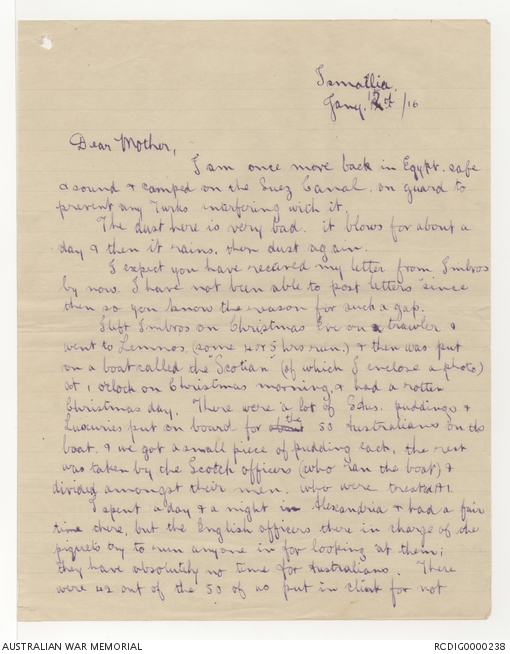 Ismailia.
Jany. 12th /16
Dear Mother,
I am once more back in Egypt. safe
& sound & camped on the Suez Canal. on guard to
prevent any Turks interfering with it.
The dust here is very bad. it blows for about a
day & then it rains. then dust again.
I expect you have received my letter from Imbros
by now. I have not been able to post letters since
then so you know the reason for such a gap.
I left Imbros on Christmas Eve on a trawler &
went to Lemnos (some 4 or 5 hrs run.) & then was put
on a boat called the "Scotian" (of which I enclose a photo)
at 1 oclock on Christmas morning, & had a rotten
Christmas day. There were a lot of puddings &
Luxuries put on board for the 50 Australians on the
boat. & we got a small piece of pudding each, the rest
was taken by the Scotch officers (who ran the boat) &
divided amongst their men. who were treated A1.
I spent a day & a night in Alexandria & had a fair
time there, but the English officers there in charge of the
piquets try to run anyone in for looking at them;
they have absolutely no time for Australians. There
were 42 out of the 50 of us put in clink for not
AUSTRALIAN WAR MEMORIAL
RCDIG0000238